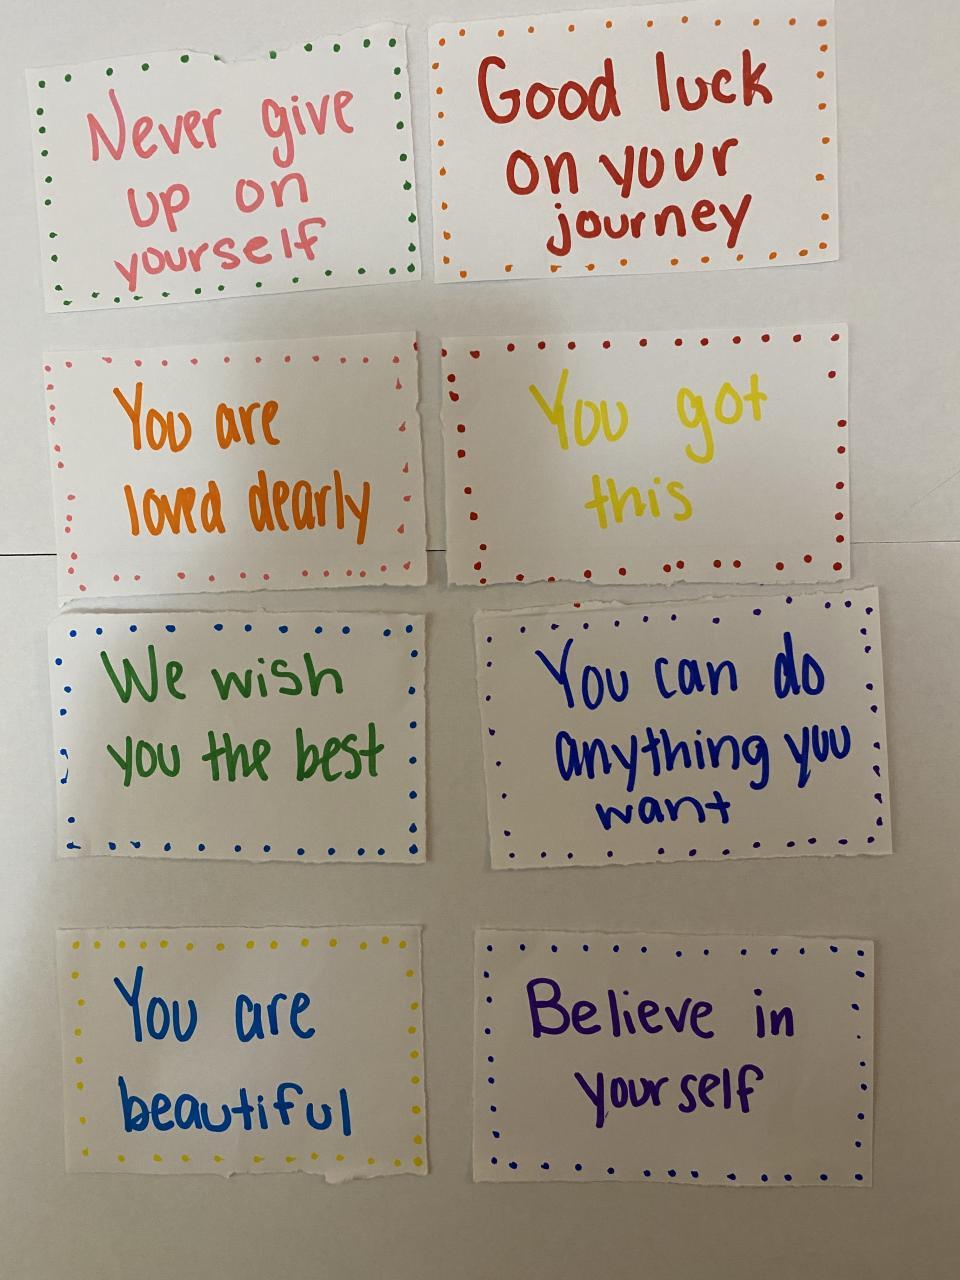 Never give
up on
yourself
Good luck
on your
journey
You are
loved dearly
You got
this
We wish
you the best
You can do
anything you
want
You are
beautiful
Believe in
yourself